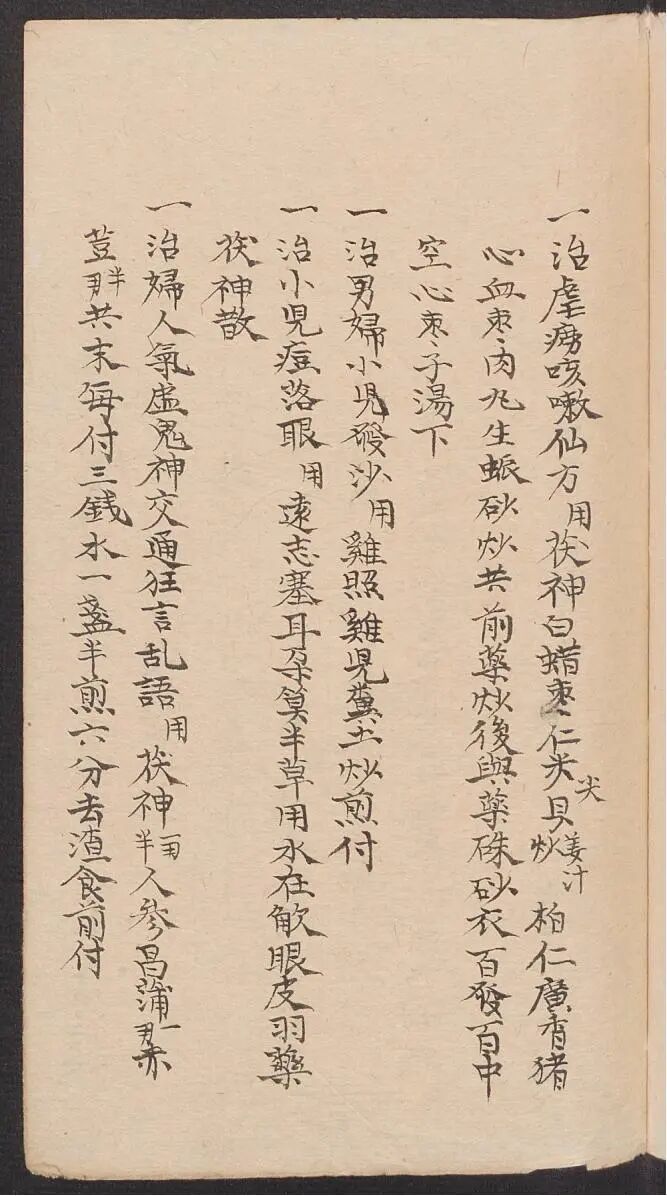 一治虐痨咳嗽仙方用茯神白蜡枣仁尖尖貝姜汁炒柏仁廣香猪
心血枣肉九生蚖砂炒共前藥炒後與藥硃砂衣百發百中
空心枣子湯下
一治男婦小児發沙用雞照雞児糞土炒煎付
一治小児痘落眼用遠志塞耳朶筧半草用水在觘眼皮羽藥
茯神散
一治婦人氣虛鬼神交通狂言乱語用茯神一両半人參昌蒲一両赤
荳半両共末每付三錢水一盞半煎六分去渣食前付